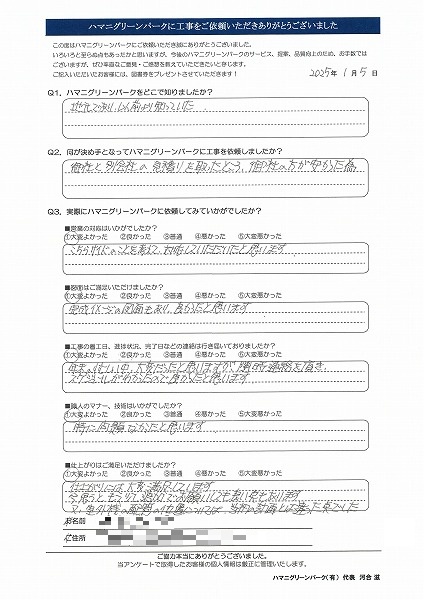 ハマニグリーンパークに工事をご依頼いただきありがとうございました
この度はハマニグリーンパークにご依頼いただき誠にありがとうございました。
いろいろと至らぬ点もあったかと思いますが、今後のハマニグリーンパークのサービス、提案、品質向上のため、お手数では
ございますが、ぜひ率直なご意見・ご感想を教えていただきたいと存じます。
ご記入いただいたお客様には、図書券をプレゼントさせていただきます!
2025年 1月 5日
Q1. ハマニグリーンパークをどこで知りましたか?
地元であり、以前より知っていた
Q2. 何が決め手となってハマニグリーンパークに工事を依頼しましたか?
御社と別会社の見積りを取ったところ、御社の方が安かった為
Q3. 実際にハマニグリーンパークに依頼してみていかがでしたか?
■営業の対応はいかがでしたか?
①大変よかった ②良かった ③普通 ④悪かった ⑤大変悪かった
していただいたと思います
■図面はご満足いただけましたか?
①大変よかった ②良かった ③普通 ④悪かった ⑤大変悪かった
完成イメージの図面もあり、良かったと思います
■工事の着工日、進捗状況、完了日などの連絡は行き届いておりましたか?
①大変よかった ②良かった ③普通 ④悪かった ⑤大変悪かった
年末の忙しい中、大変だったと思いますが、連絡を頂き
スケジュールがわかったので良かったと思います
■職人のマナー、技術はいかがでしたか?
①大変よかった ②良かった ③普通 ④悪かった ⑤大変悪かった
特に問題なかったと思います
■仕上がりにはご満足いただけましたか?
①大変よかった ②良かった ③普通 ④悪かった ⑤大変悪かった
仕上がりには大変満足しています
今思うともう少し
お名前
ご住所
ご協力本当にありがとうございました。
当アンケートで取得したお客様の個人情報は厳正に管理いたします。
ハマニグリーンパーク(有) 代表 河合 滋